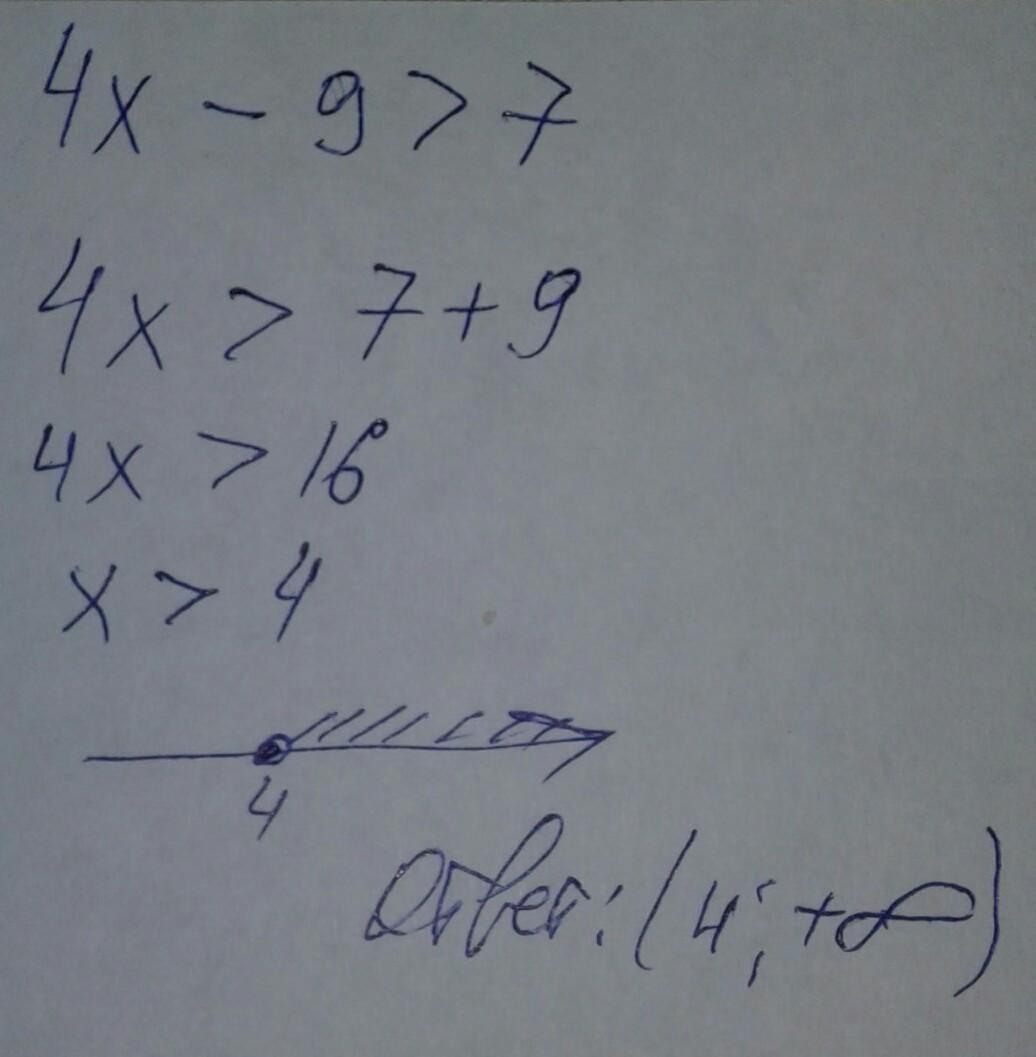 4x - 9 > 7
4x > 7 + 9
4x > 16
x > 4
4
Ответ: (4; +∞)